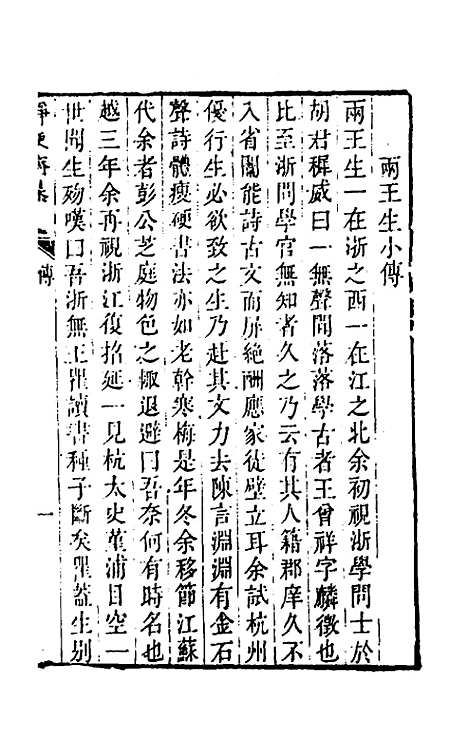 兩王生小傳
兩王生一在浙之西一在江之北余初視浙學問士於
胡君穉威曰一無聲聞落落學古者王曾祥字麟徵也
比至浙問學官無知者久之乃云有其人籍郡庠久不
入省闈能詩古文而屏絕酬應家徒壁立耳余試杭州
優行生必欲致之生乃赴其文力去陳言淵淵有金石
聲詩體瘦硬書法亦如老榦寒梅是年冬余移節江蘇
代余者彭公芝庭物色之輒退避曰吾奈何有時名也
越三年余再視浙江復招延一見杭太史堇浦目空一
世聞生歿嘆曰吾浙無王瞿讀書種子斷矣瞿蓋生別
傳
一